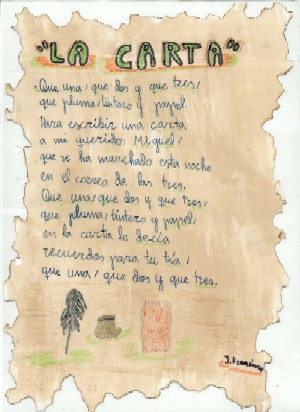 "LA CARTA"
Que una, que dos y que tres,
que pluma, tintero y papel
Para escribir una carta
a mi querido Miguel,
que se ha marchado esta noche
en el correo de las tres.
Que una, que dos y que tres,
que pluma, tintero y papel,
en la carta le decía
recuerdos para tu tía,
que una, que dos y que tres.
J. Francisco